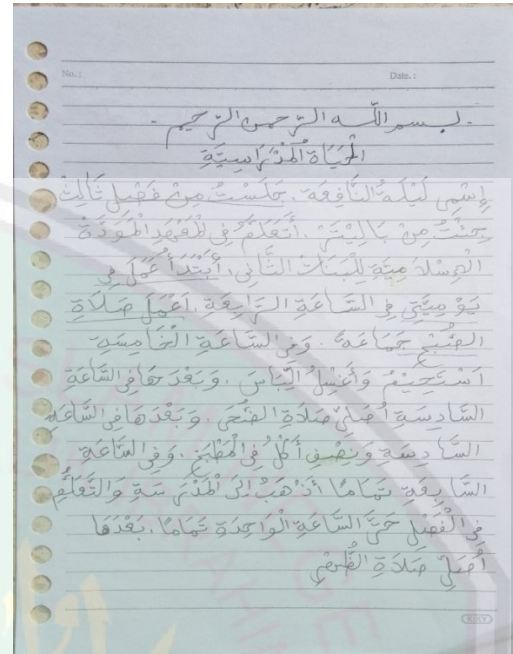 No.:
Date.:
- بسم اللّه الرّحمن الرّحيم -
الْحَيَاةُ الْمَدْرَاسِيَّةِ
إِسْمِي لَيْلَةُ النَّافِعَة. جَلَسْتُ مِنْ فَصْلِ ثَالِثْ
جِئْتُ مِنْ بَالِيْتَرْ. أَتَعَلَّمُ فِي الْمَعْهَدِ الْمَوَدَّةْ
الْإِسْلَامِيَةِ لِلْبَنَاتِ الثَّانِي. أَبْتَدَأُ عَمَلَ فِي
يَوْمِيَّتِي فِي السَّاعَةِ الرَّابِعَةِ. أَعْمَلُ صَلَاةِ
الصُّبْحِ جَمَاعَةً. وَفِي السَّاعَةِ الْخَامِسَةِ
اَسْتَحِيْمُ وَأَغْسِلُ الِّبَاسَ. وَبَعْدَهَا فِي السَّاعَةِ
السَّادِسَةِ أُصَلِّي صَلَاةِ الضُّحَى. وَبَعْدَهَا فِي السَّاعَة
السَّادِسَةِ وَنِصْفِ أَكُلُ فِي الْمَطْبَخِ. وَفِي السَّاعَةِ
السَّابِعَةِ تَمَامًا أَذْهَبُ إِلَى الْمَدْرَسَةِ وَالتَّعَلُّمِ
فِي الْفَصْلِ حَتَّى السَّاعَةِ الْوَاحِدَةِ تَمَامًا. بَعْدَهَا
أُصَلِّي صَلَاةِ الظُّهْرِ
KIKY